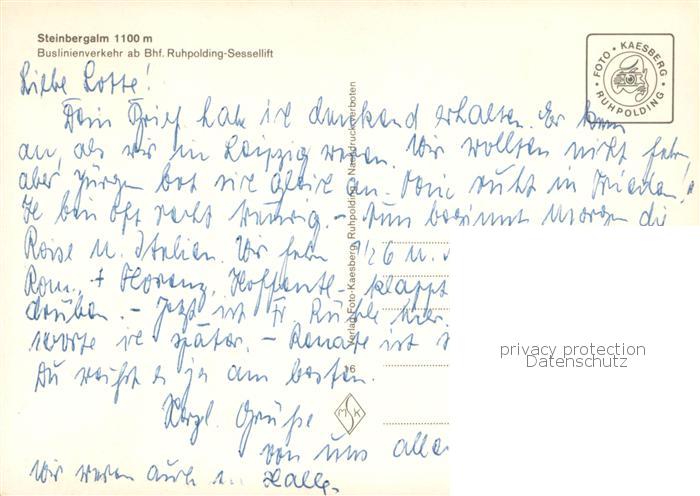 Steinbergalm 1100 m
Buslinienverkehr ab Bhf. Ruhpolding-Sessellift
FOTO · KAESBERG · RUHPOLDING ·
Liebe Lotte!
Dein Brief habe ich dankend erhalten. Er kam
an, als wir in Leipzig waren. Wir wollten nicht fahren
aber Jürgen bot sich gleich an. ruht in Frieden!
Ich bin oft recht traurig. – Nun beginnt morgen die
Reise n. Italien. Wir fahren 1/2 6 U.
Rom + Florenz. Hoffentl. klappt
drüben. – Jetzt ist Fr. hier.
ich später. – Renate ist
Du weißt es ja am besten.
Herzl. Grüße
von uns allen
Wir waren auch in Halle.
Verlag Foto-Kaesberg, Ruhpolding, Nachdruck verboten
16
M S K
privacy protection
Datenschutz